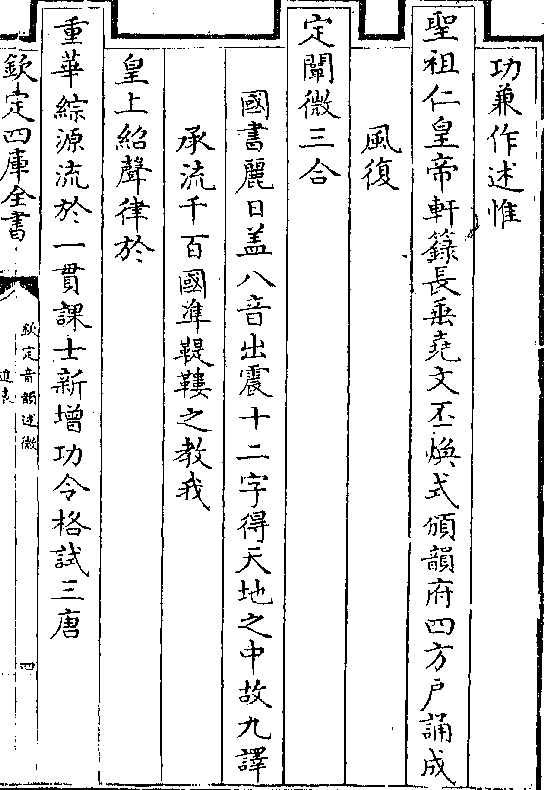 功兼作述惟
聖祖仁皇帝軒籙長垂堯文丕煥式頒韻府四方戶誦成
風復
定闡微三合
國書麗日盖八音出震十二字得天地之中故九譯
承流千百國準鞮鞻之教我
皇上紹聲律於
重華綜源流於一貫課士新增功令格試三唐
欽定四庫全書
欽定音韻述微
進表
四